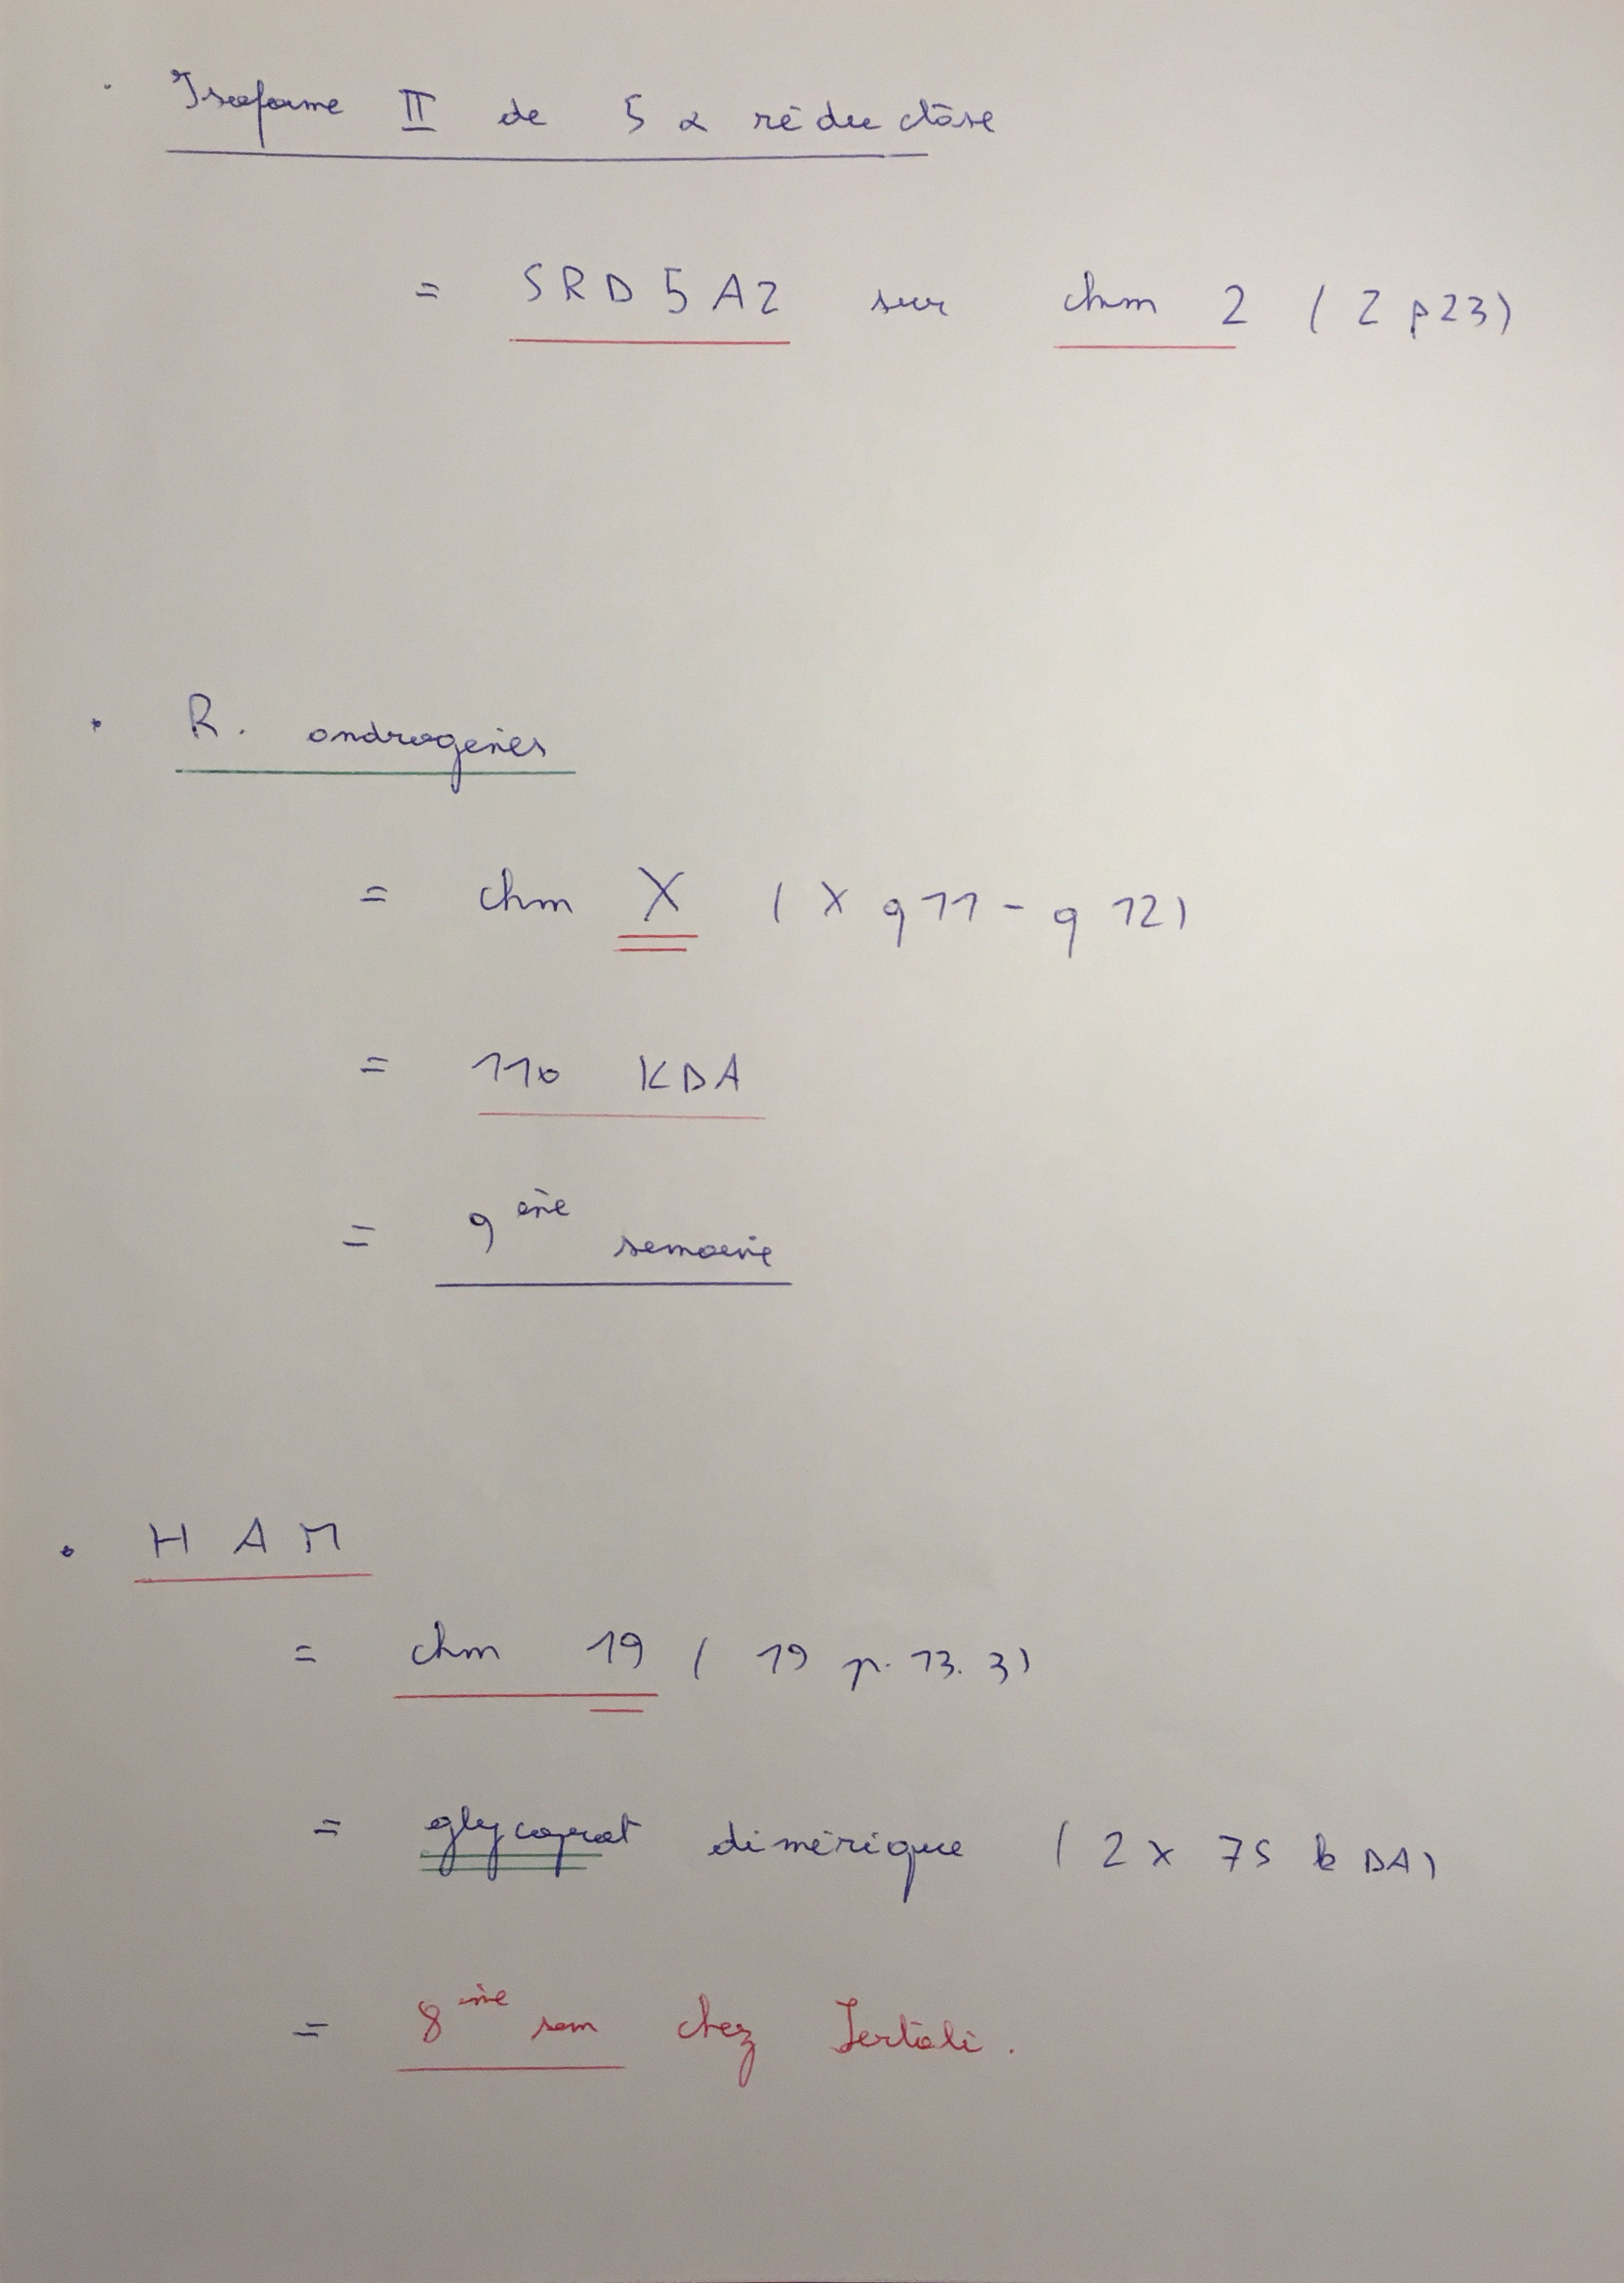 · Isoforme II de 5 α réductase
= SRD5A2 sur chm 2 (2p23)
· R. androgènes
= chm X (Xq11-q12)
= 110 KDA
= 9ème semaine
· HAM
= chm 19 (19p.13.3)
= glycoprot dimérique (2 x 75 kDA)
= 8ème sem chez Sertoli.